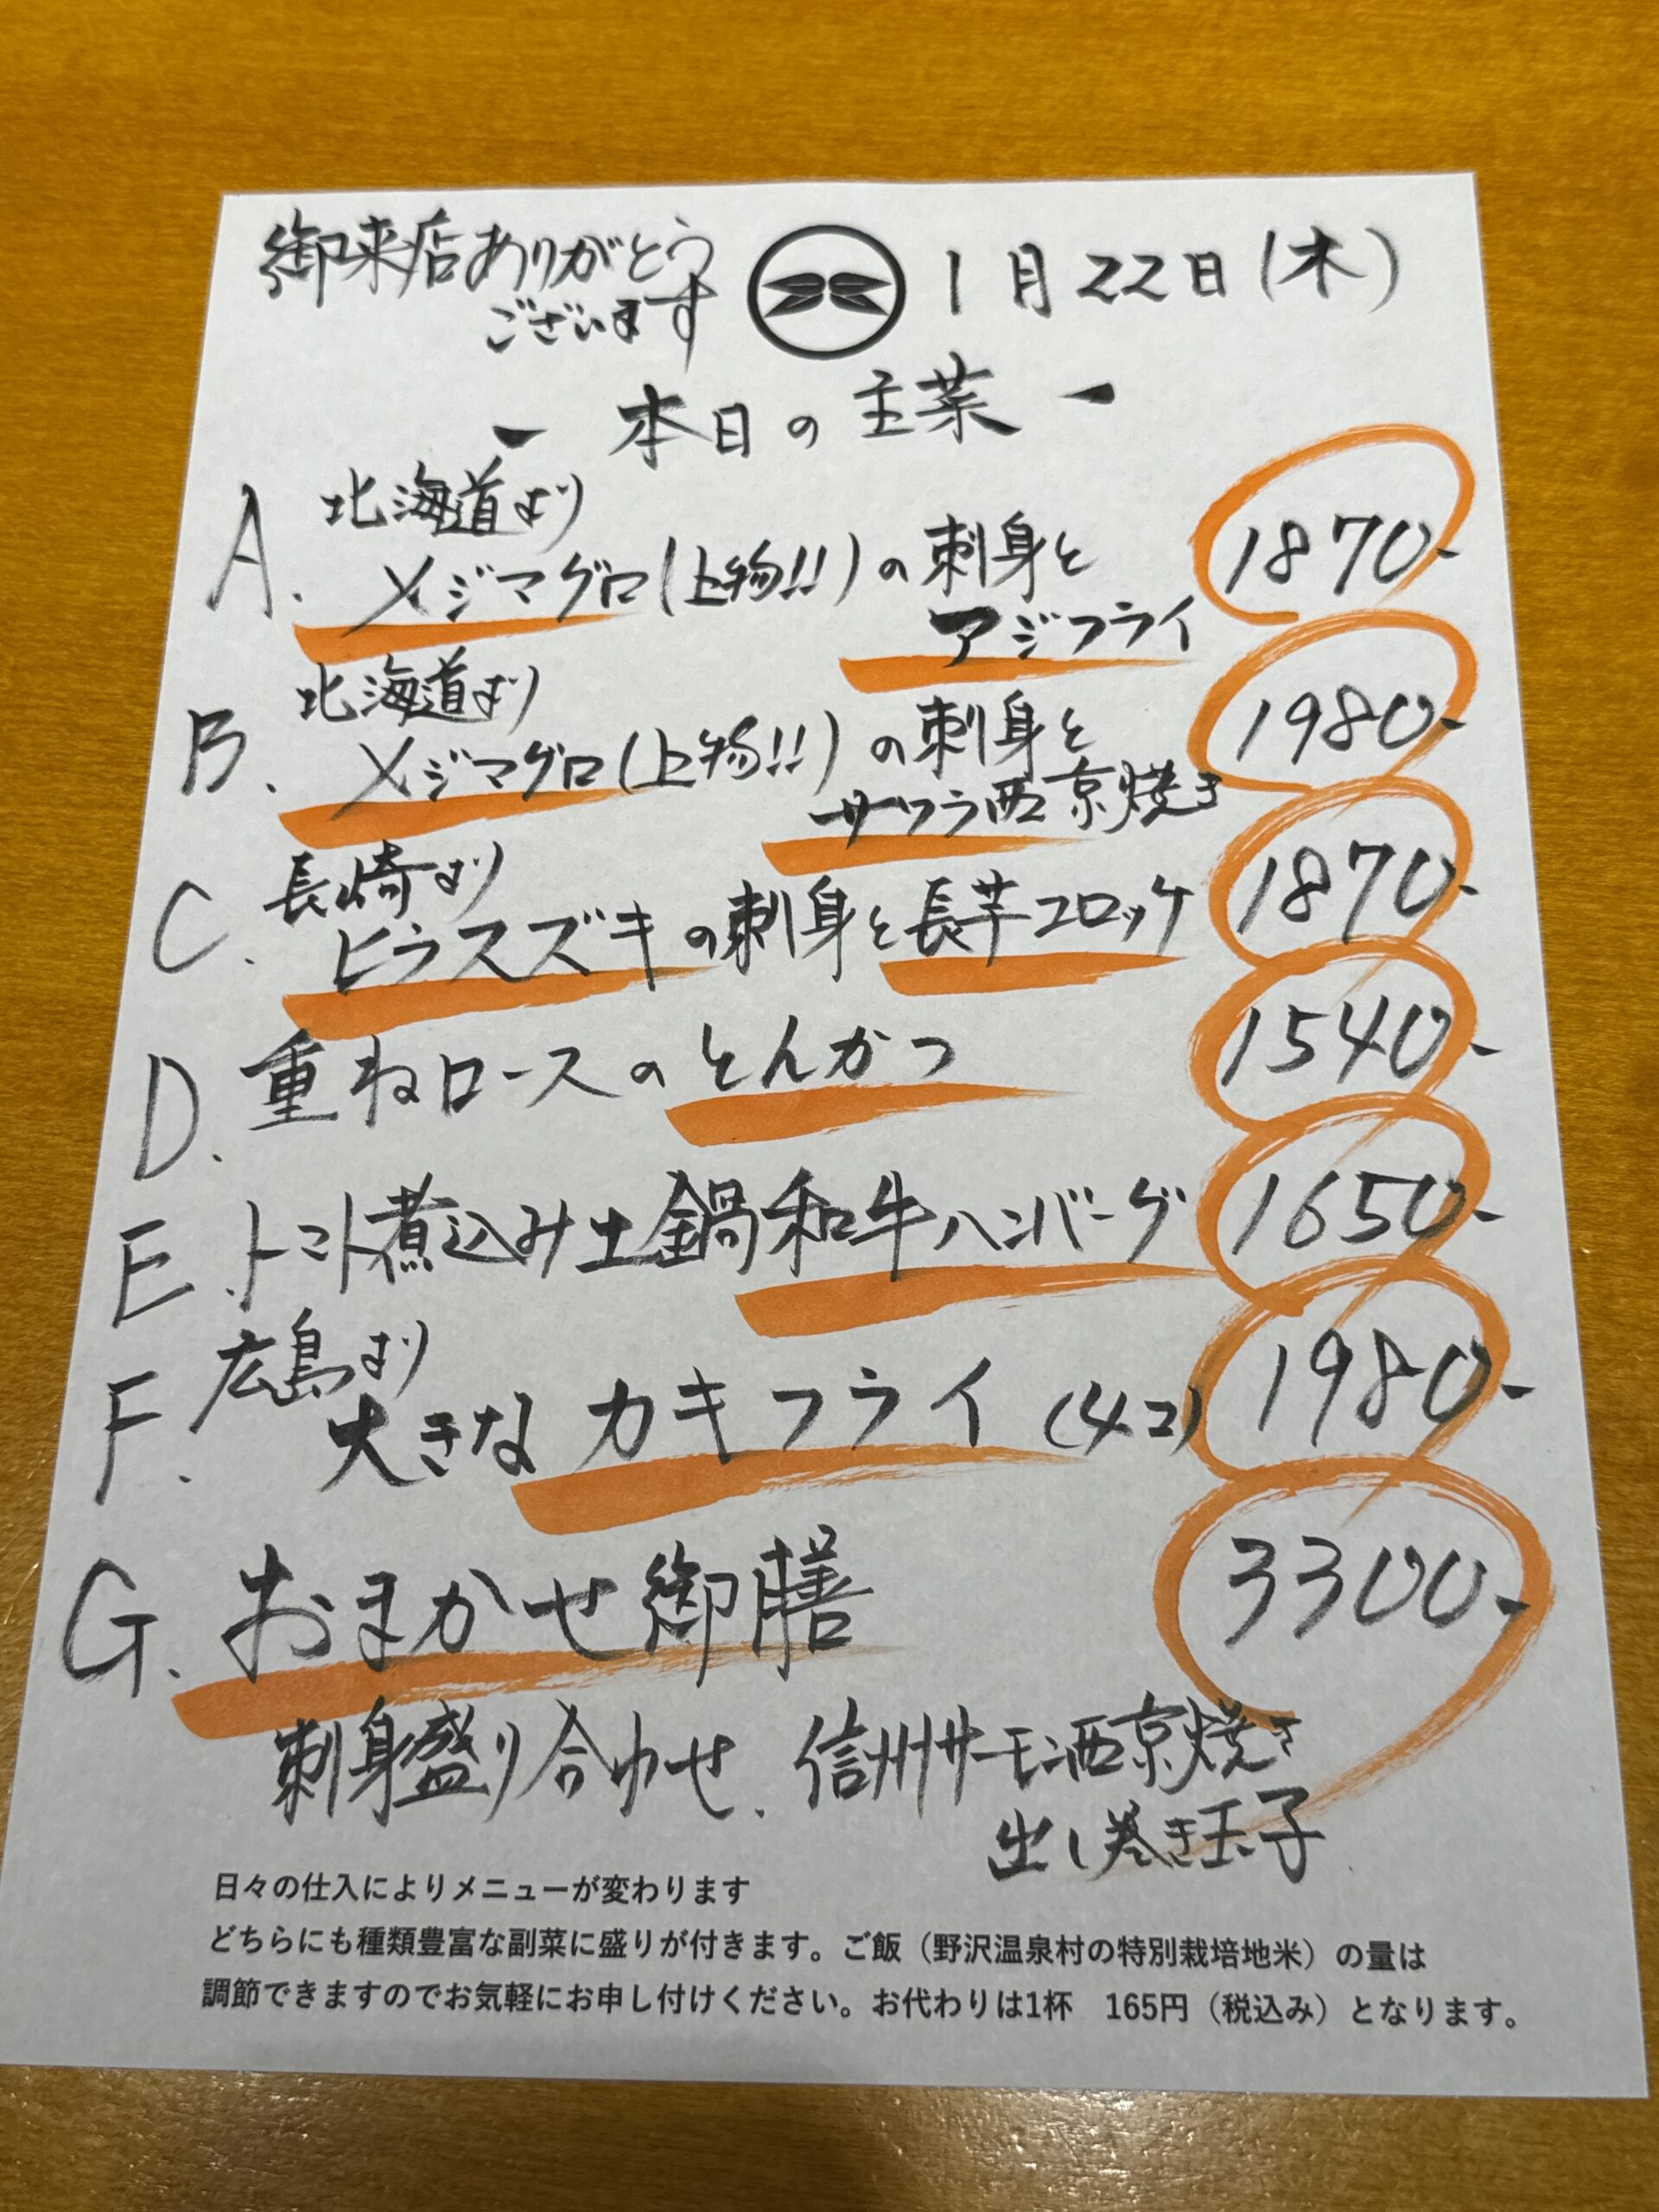 御来店ありがとう
ございます
1月22日(木)
- 本日の主菜 -
A. 北海道より
メジマグロ(上物!!)の刺身と
アジフライ
1870-
B. 北海道より
メジマグロ(上物!!)の刺身と
サワラ西京焼き
1980-
C. 長崎より
ヒラスズキの刺身と長芋コロッケ
1870-
D. 重ねロースのとんかつ
1540-
E. トマト煮込み土鍋和牛ハンバーグ
1650-
F. 広島より
大きなカキフライ(4コ)
1980-
G. おまかせ御膳
3300-
刺身盛り合わせ、信州サーモン西京焼き
出し巻き玉子
日々の仕入によりメニューが変わります
どちらにも種類豊富な副菜に盛りが付きます。ご飯（野沢温泉村の特別栽培地米）の量は
調節できますのでお気軽にお申し付けください。お代わりは1杯　165円（税込み）となります。